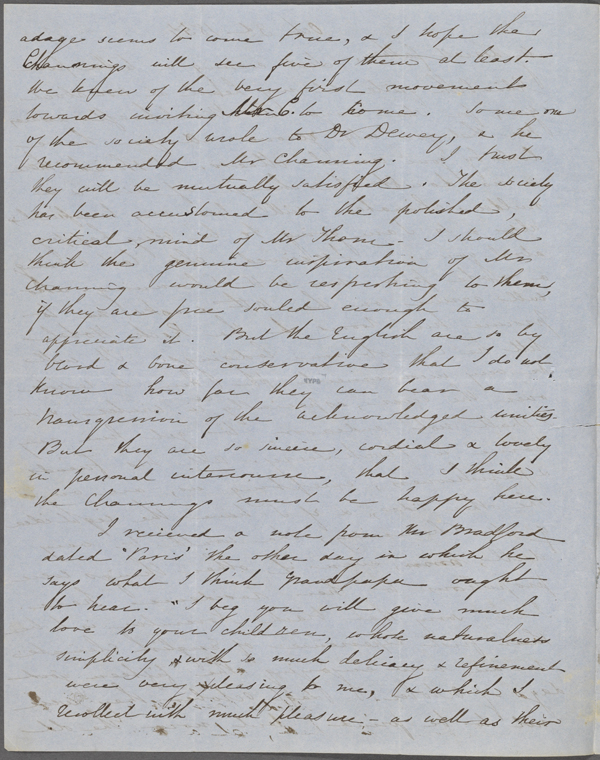 adage seems to come true, & I hope the
Channings will see five of them at least.
We knew of the very first movement
towards inviting Mr C. to come. Some one
of the society wrote to Dr Dewey, & he
recommended Mr Channing. I trust
they will be mutually satisfied. The society
has been accustomed to the polished,
critical, mind of Mr Thom - I should
think the genuine inspiration of Mr
Channing would be refreshing to them,
if they are free souled enough to
appreciate it. But the English are so by
blood & bone conservative that I do not
know how far they can bear a
transgression of the acknowledged unities
But they are so sincere, cordial & lovely
in personal intercourse, that I think
the Channings must be happy here.
I received a note from Mr Bradford
dated "Paris" the other day in which he
says what I think Grandpapa ought
to hear. "I beg you will give much
love to your children, whose naturalness
simplicity, & with so much delicacy & refinement
were very pleasing to me, & which I
recollect with much pleasure - as well as their